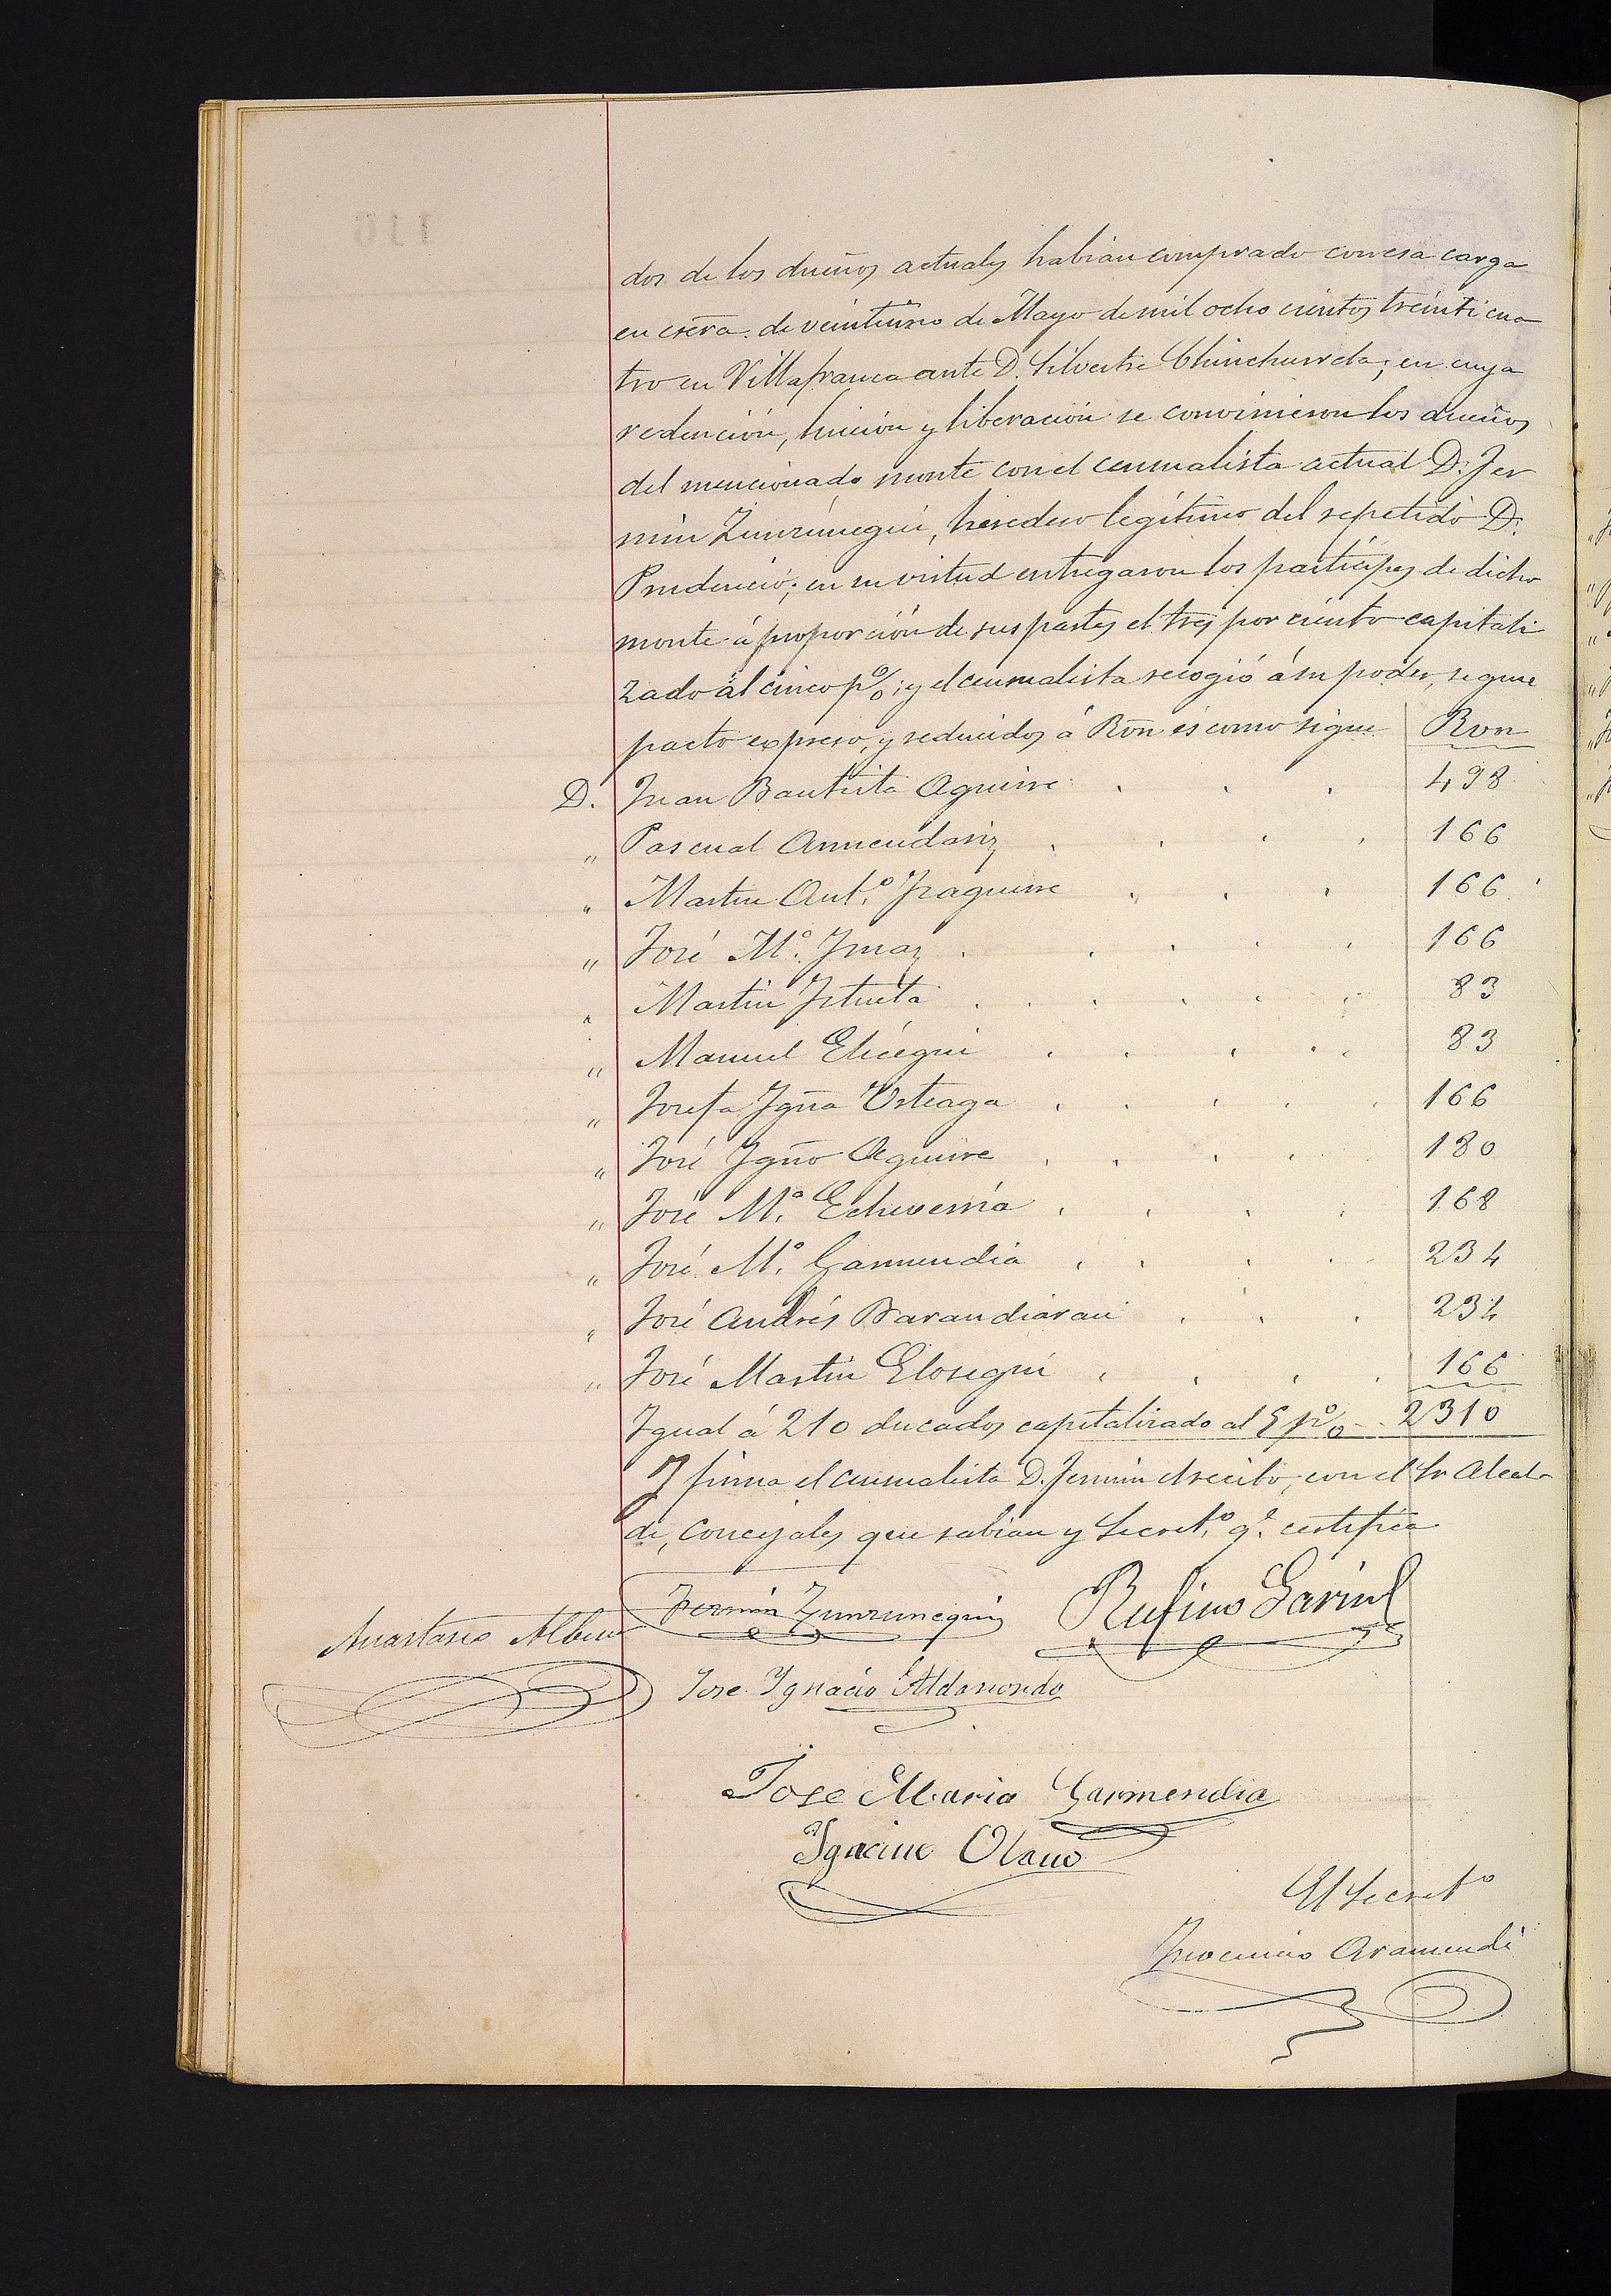 dos de los dueños actuales habian comprado con esa carga
en escra. de veintiuno de Mayo de mil ocho cientos treinti cua
tro en Villafranca ante D. Silvestre Chinchurreta; en cuya
redención, luición y liberación se convinieron los dueños
del mencionado monte con el censualista actual D. Fer
min Zunzunegui, heredero legítimo del repetido D.
Prudencio; en su virtud entregaron los partícipes de dicho
monte á proporción de sus partes el tres por ciento capitali
zado al cinco p%; y el censualista recogió á su poder, segun
pacto expreso, y reducidos á Rvn es como sigue Rvn
D. Juan Bautista Aguirre . . . 498
„ Pascual Armendariz . . . . 166
„ Martin Ant.º Iraguirre . . . 166
„ José M.ª Imaz . . . . . 166
„ Martin Iztueta . . . . . 83
„ Manuel Elicegui . . . . . 83
„ Josefa Igña Usteaga . . . . . 166
„ José Igño Aguirre . . . . 180
„ José M.ª Echeverria . . . . 168
„ José M.ª Garmendia . . . . 234
„ José Andrés Barandiaran . . . 234
„ José Martin Elosegui . . . . 166
Igual á 210 ducados capitalizado al 5 p% 2310
Y firma el censualista D. Fermin el recibo, con el Sr Alcal-
de, Concejales que sabian y Secret.º q.e certifica
Fermin Zunzunegui Rufino
Anastasio
Jose Ignacio Aldasoro
Jose Maria Garmendia
Ignacio Olano
El Secretº
Inocencio Aramendi